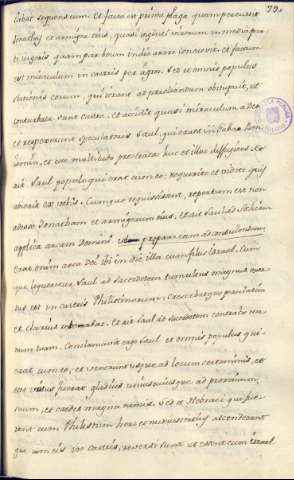 79.
cidit sequens eum. Et facta est prima plaga quam percussit
Jonathas et armiger eius, quasi viginti virorum in media par-
te iugeris, quam par boum in die arare consuevit. et factum
est miraculum in castris per agros. Sed et omnis populus
stationis eorum, qui ierant ad praedandum obstupuit, et
conturbata sunt castra. et accidit quasi miraculum a Deo
et respexerunt speculatores Saul, qui erant in Gabaa Ben-
iamin, et ecce multitudo prostrata, huc et illuc diffugiens. Et
ait Saul populo qui erat cum eo: requirite et videte quis
abierit ex vobis. Cumque requisissent, repertum est non
adesse Jonatham et armigerum eius. et ait Saul ad
applica arcam Domini.
erat enim arca Dei ibi in die illa cum filiis Israel. Cum
que loqueretur Saul ad sacerdotem tumultus magnus exor-
tus est in castris Philistinorum. Crescebatque paulatim
et clarius resonabat. Et ait Saul ad sacerdotem contrahe ma-
num tuam. Conclamavit ergo Saul et omnis populus qui
erat cum eo, et venerunt usque ad locum certaminis, et
ecce versus fuerat gladius uniuscuiusque ad proximum
suum, et caedes magna nimis. Sed et Hebraei qui fue-
rant cum Philistiim heri et nudiustertius ascenderant
que cum eis in castris, reversi sunt ut essent cum Israel